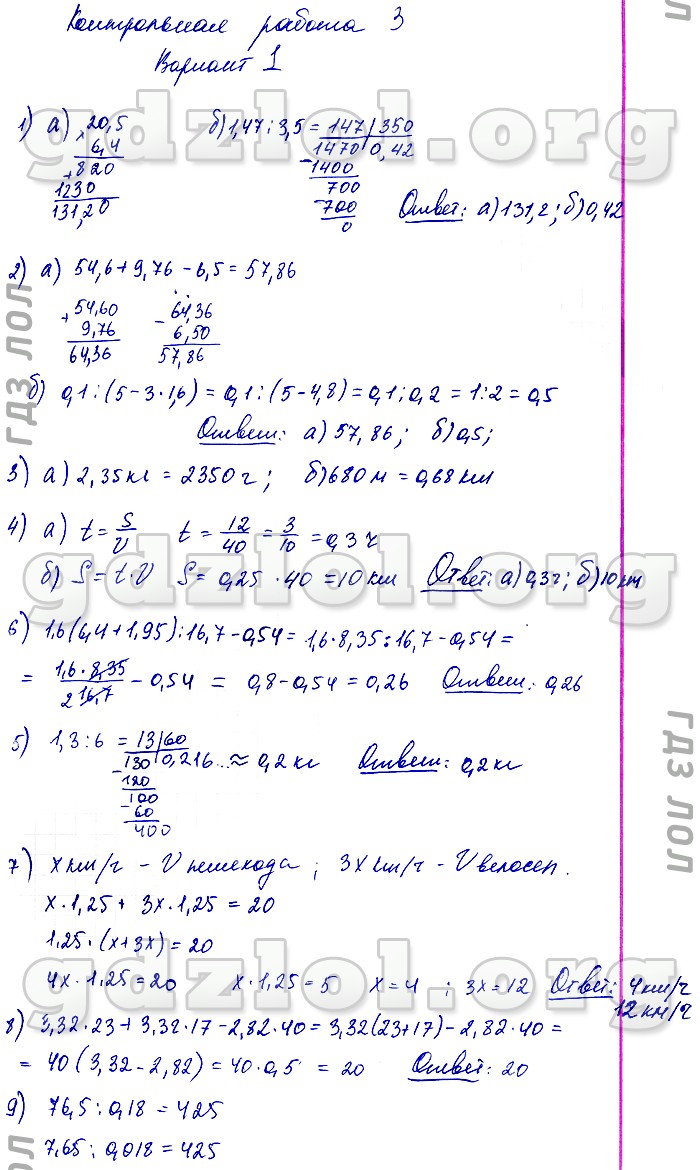 Контрольная работа 3
Вариант 1
1) а) 20,5 б) 1,47 : 3,5 = 147 / 350
× 6,4 1470 0,42
+ 820 - 1400
1230 700
131,20 - 700
0
Ответ: а) 131,2 ; б) 0,42
2) а) 54,6 + 9,76 - 6,5 = 57,86
+ 54,60 - 64,36
9,76 6,50
64,36 57,86
б) 0,1 : (5 - 3 · 1,6) = 0,1 : (5 - 4,8) = 0,1 : 0,2 = 1 : 2 = 0,5
Ответ: а) 57,86 ; б) 0,5 ;
3) а) 2,35 кг = 2350 г ; б) 680 м = 0,68 км
4) а) t = S/V t = 12/40 = 3/10 = 0,3 ч
б) S = t · V S = 0,25 · 40 = 10 км Ответ: а) 0,3 ч ; б) 10 км
6) 1,6 (6,4 + 1,95) : 16,7 - 0,54 = 1,6 · 8,35 : 16,7 - 0,54 =
= 1,6 · 8,35 / 2 16,7 - 0,54 = 0,8 - 0,54 = 0,26 Ответ: 0,26
5) 1,3 : 6 = 13 / 60
- 130 0,216... ≈ 0,2 кг Ответ: 0,2 кг
120
- 100
60
400
7) x км/ч - V пешехода ; 3x км/ч - V велосип.
x · 1,25 + 3x · 1,25 = 20
1,25 · (x + 3x) = 20
4x · 1,25 = 20 x · 1,25 = 5 x = 4 ; 3x = 12 Ответ: 4 км/ч
12 км/ч
8) 3,32 · 23 + 3,32 · 17 - 2,82 · 40 = 3,32 (23 + 17) - 2,82 · 40 =
= 40 (3,32 - 2,82) = 40 · 0,5 = 20 Ответ: 20
9) 76,5 : 0,18 = 425
7,65 : 0,018 = 425
gdzlol.org
gdzlol.org
gdzlol.org
ГДЗ ЛОЛ
ГДЗ ЛОЛ